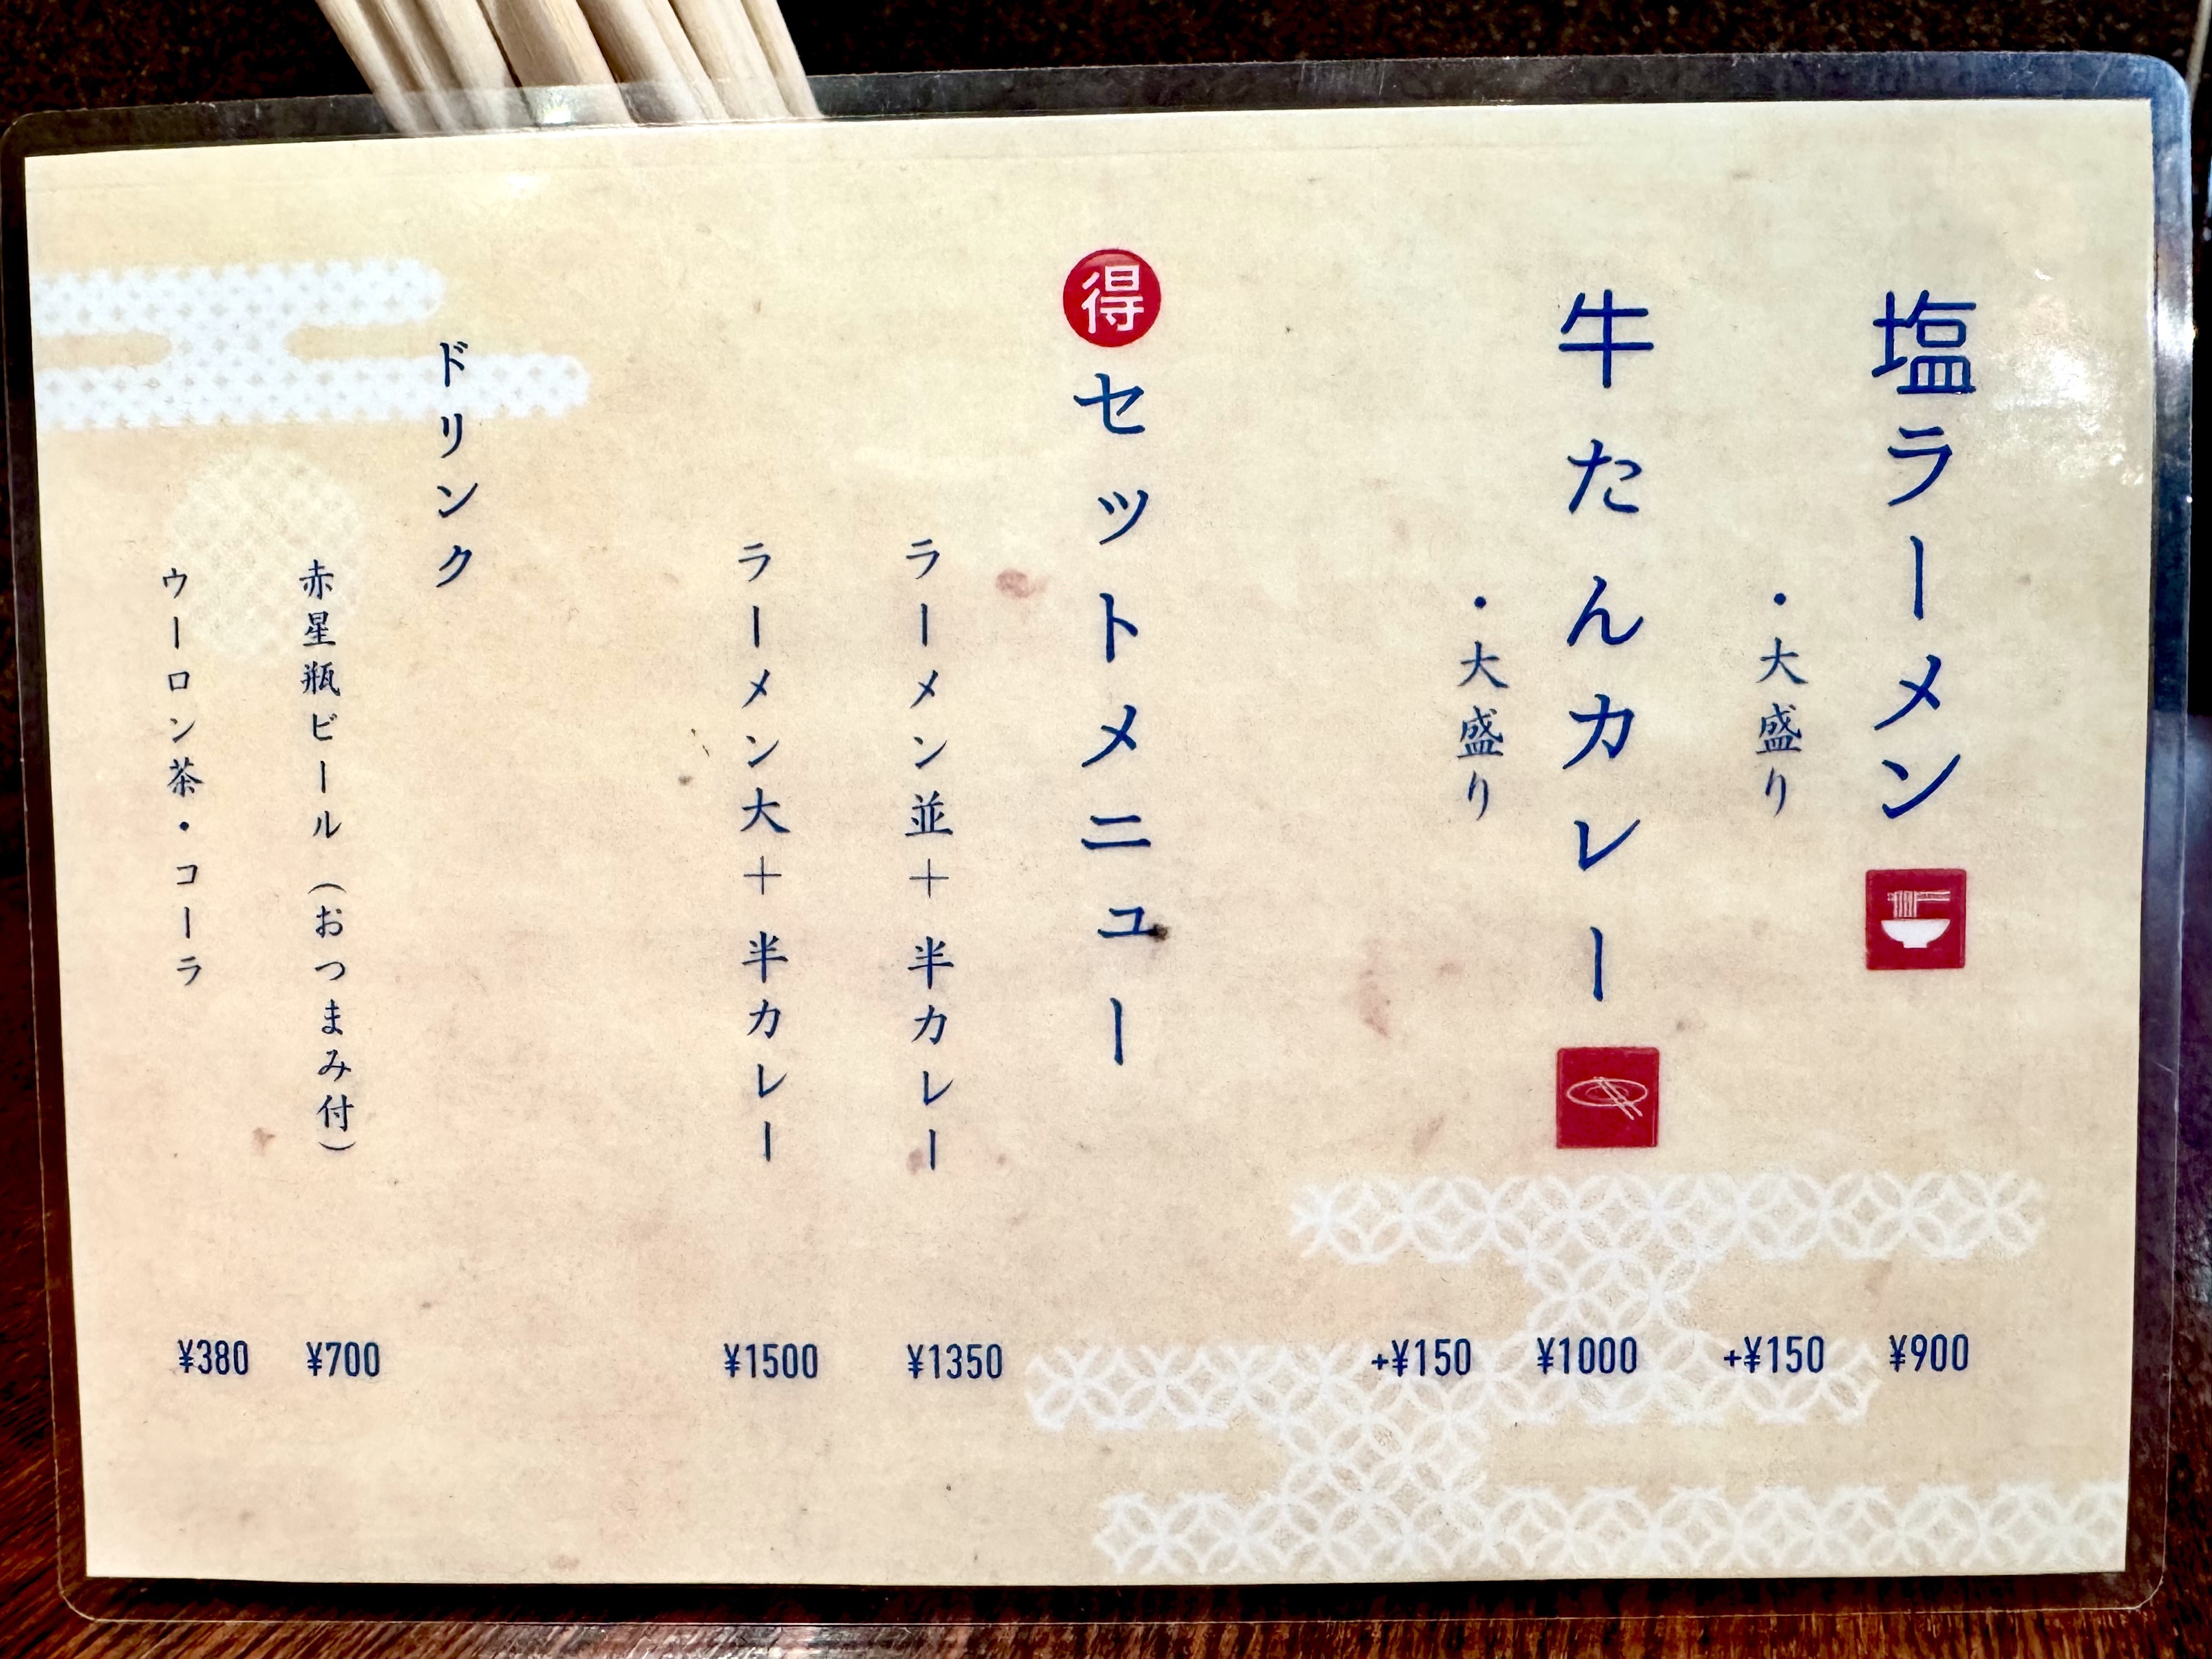 塩ラーメン
¥900
・大盛り
+¥150
牛たんカレー
¥1000
・大盛り
+¥150
得 セットメニュー
ラーメン並＋半カレー
¥1350
ラーメン大＋半カレー
¥1500
ドリンク
赤星瓶ビール（おつまみ付）
¥700
ウーロン茶・コーラ
¥380